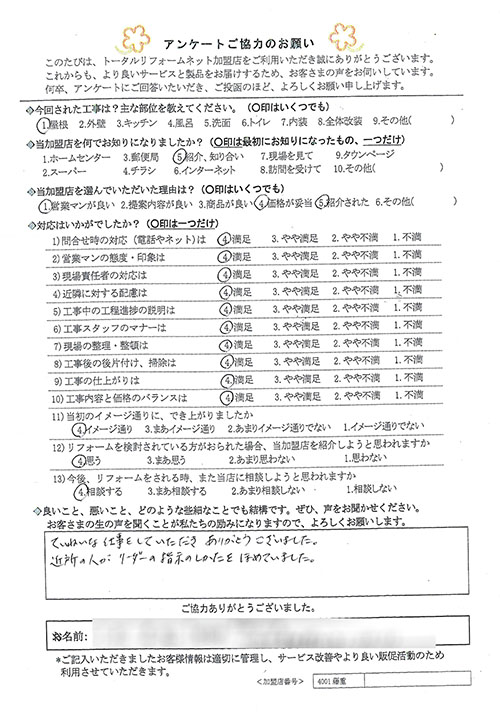 アンケートご協力のお願い
このたびは、トータルリフォームネット加盟店をご利用いただき誠にありがとうございます。
これからも、より良いサービスと製品をお届けするため、お客さまの声をお伺いしています。
何卒、アンケートにご回答いただき、ご投函のほど、よろしくお願い申し上げます。
◇今回された工事は？主な部位を教えてください。（〇印はいくつでも）
1.屋根 2.外壁 3.キッチン 4.風呂 5.洗面 6.トイレ 7.内装 8.全体改装 9.その他( )
◇当加盟店を何でお知りになりましたか？（〇印は最初にお知りになったもの、一つだけ）
1.ホームセンター 3.郵便局 5.紹介、知り合い 7.現場を見て 9.タウンページ
2.スーパー 4.チラシ 6.インターネット 8.訪問を受けて 10.その他( )
◇当加盟店を選んでいただいた理由は？（〇印はいくつでも）
1.営業マンが良い 2.提案内容が良い 3.商品が良い 4.価格が妥当 5.紹介された 6.その他( )
◇対応はいかがでしたか？（〇印は一つだけ）
1)問合せ時の対応（電話やネット）は 4.満足 3.やや満足 2.やや不満 1.不満
2)営業マンの態度・印象は 4.満足 3.やや満足 2.やや不満 1.不満
3)現場責任者の対応は 4.満足 3.やや満足 2.やや不満 1.不満
4)近隣に対する配慮は 4.満足 3.やや満足 2.やや不満 1.不満
5)工事中の工程進捗の説明は 4.満足 3.やや満足 2.やや不満 1.不満
6)工事スタッフのマナーは 4.満足 3.やや満足 2.やや不満 1.不満
7)現場の整理・整頓は 4.満足 3.やや満足 2.やや不満 1.不満
8)工事後の後片付け、掃除は 4.満足 3.やや満足 2.やや不満 1.不満
9)工事の仕上がりは 4.満足 3.やや満足 2.やや不満 1.不満
10)工事内容と価格のバランスは 4.満足 3.やや満足 2.やや不満 1.不満
11)当初のイメージ通りに、でき上がりましたか
4.イメージ通り 3.まあイメージ通り 2.あまりイメージ通りでない 1.イメージ通りでない
12)リフォームを検討されている方がおられた場合、当加盟店を紹介しようと思われますか
4.思う 3.まあ思う 2.あまり思わない 1.思わない
13)今後、リフォームをされる時、また当店に相談しようと思われますか
4.相談する 3.まあ相談する 2.あまり相談しない 1.相談しない
◇良いこと、悪いこと、どのような些細なことでも結構です。ぜひ、声をお聞かせください。
お客さまの生の声を聞くことが私たちの励みになりますので、よろしくお願いします。
ていねいな仕事をしていただき ありがとうございました。
近所の人が リーダーの指示のしかたを ほめていました。
ご協力ありがとうございました。
お名前:
*ご記入いただきましたお客様情報は適切に管理し、サービス改善やより良い販促活動のため
利用させていただきます。
＜加盟店番号＞ 4001 藤重